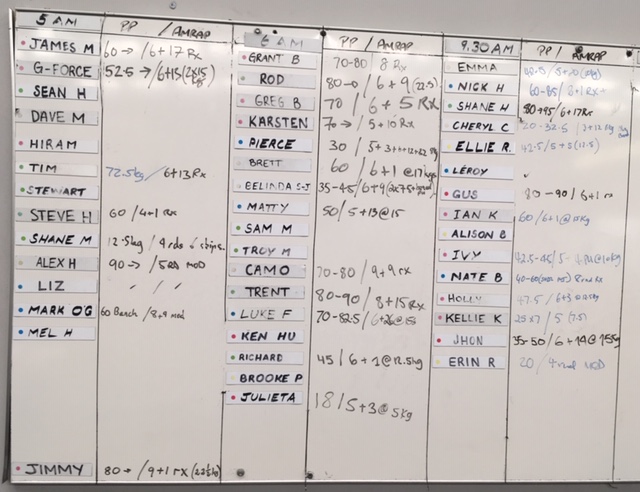 5 AM PP / AMRAP
JAMES M 60 → / 6+17 Rx
G-FORCE 52.5 → / 6+15 (2x15)
SEAN H
DAVE M
HIRAM
TIM 72.5kg / 6+13 Rx
STEWART
STEVE H 60 / 4+1 Rx
SHANE M 12.5kg / 4 rds
ALEX H 90 → / 5 RDS MOD
LIZ
MARK O'G 60 Bench / 8+9 mod
MEL H
JIMMY 80 → / 9+1 rx
6 AM PP / AMRAP
GRANT B 70-80 / 8 Rx
ROD 80 → / 6+9 (22.5)
GREG B 70 / 6+5 Rx
KARSTEN 70 → / 5+10 Rx
PIERCE 30 / 5+3
BRETT 60 / 6+1 @ 17kgs
BELINDA S-J 35-45 / 6+9
MATTY 50 / 5+13 @ 15
SAM M
TROY M
CAMO 70-80 / 9+9 rx
TRENT 80-90 / 8+15 Rx
LUKE F 70-82.5 / 6+26 @ 15
KEN HU
RICHARD 45 / 6+1 @ 12.5kg
BROOKE P
JULIETA 18 / 5+3 @ 5kg
9.30 AM PP / AMRAP
EMMA
NICK H 60-85 / 8+1 Rx
SHANE H 80+95 / 6+17 Rx
CHERYL C 20-32.5 / 3+12
ELLIE R. 42.5 / 5+5 (12.5)
LEROY
GUS 80-90 / 6+1 rx
IAN K 60 / 6+1 @ 15kg
ALISON B
IVY 42.5-45 / 5
NATE B 40-60
HOLLY 47.5 / 6+3 @ 12.5kg
KELLIE K 25x7 / 5 (7.5)
JHON 35-50 / 6+14 @ 15kg
ERIN R 20 / 4 MOD